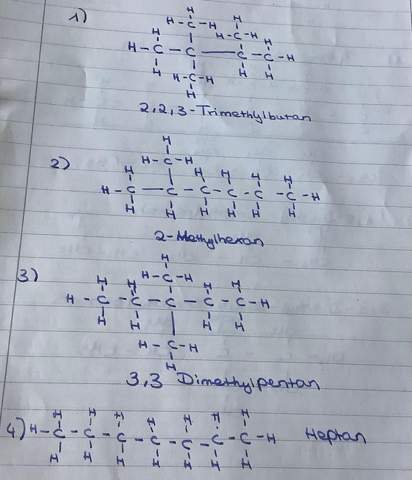 1)
H
H-C-H H
H H-C-H H
H-C-C-C-C-H
H H-C-H H H
H
2,2,3-Trimethylbutan
2)
H
H-C-H
H H H H H
H-C-C-C-C-C-C-H
H H H H H H
2-Methylhexan
3)
H
H H H-C-H H H
H-C-C-C-C-C-H
H H H H
H-C-H
H
3,3 Dimethylpentan
H H H H H H H
4) H-C-C-C-C-C-C-C-H Heptan
H H H H H H H